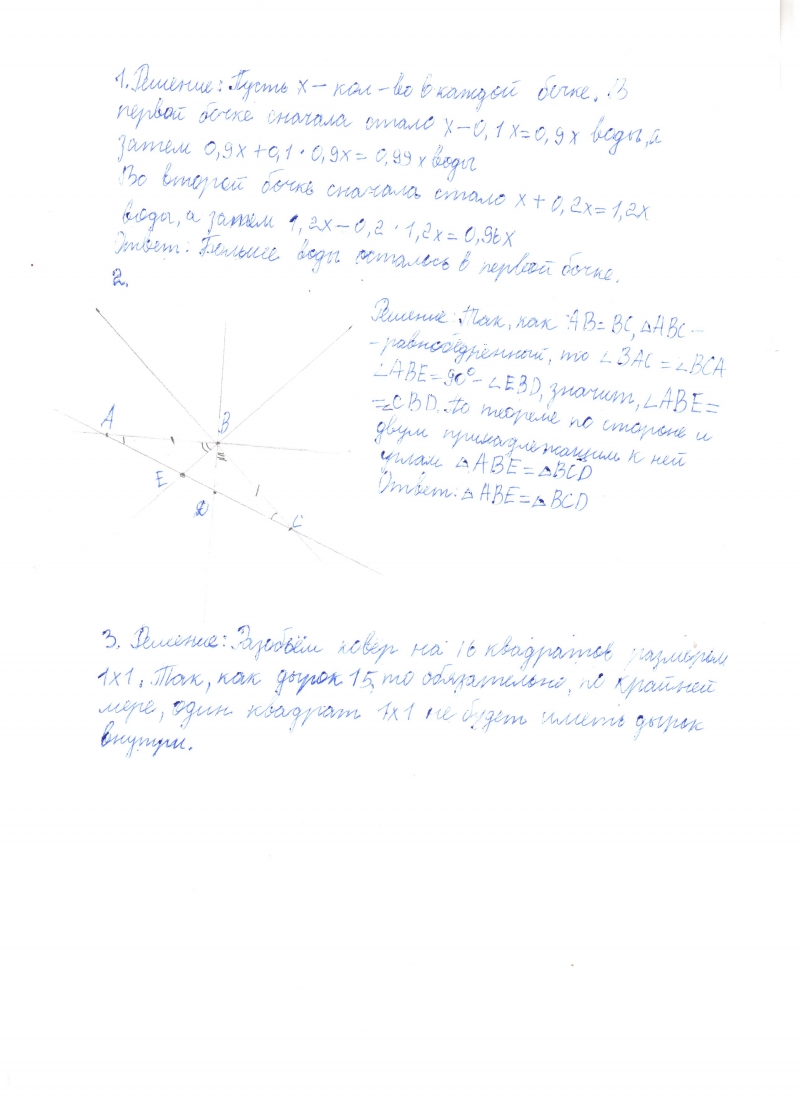 1. Решение: Пусть x – кол-во в каждой бочке. В
первой бочке сначала стало x-0,1x=0,9x воды, а
затем 0,9x+0,1·0,9x=0,99x воды
Во второй бочке сначала стало x+0,2x=1,2x
воды, а затем 1,2x-0,2·1,2x=0,96x
Ответ: Больше воды осталось в первой бочке.
2.
Решение: Так, как AB=BC, △ABC –
- равнобедренный, то ∠BAC=∠BCA
∠ABE=90°-∠EBD, значит, ∠ABE=
=∠CBD. По теореме по стороне и
двум принадлежащим к ней
углам △ABE=△BCD
Ответ: △ABE=△BCD
A
B
E
D
C
3. Решение: Разобьём ковёр на 16 квадратов размером
1x1. Так, как дырок 15, то обязательно, по крайней
мере, один квадрат 1x1 не будет иметь дырок
внутри.